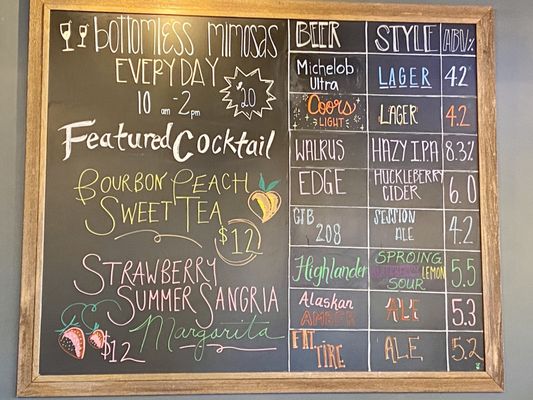 bottomless mimosas
EVERYDAY
10 am - 2 pm
$20
Featured Cocktail
BOURBON PEACH
SWEET TEA
$12
STRAWBERRY
SUMMER SANGRIA
$12
Margarita
BEER STYLE ABV%
Michelob Ultra LAGER 4.2
Coors LIGHT LAGER 4.2
WALRUS HAZY IPA 8.3%
EDGE HUCKLEBERRY CIDER 6.0
GTB 208 SESSION ALE 4.2
Highlander SPROING LEMON SOUR 5.5
Alaskan AMBER ALE 5.3
FAT TIRE ALE 5.2